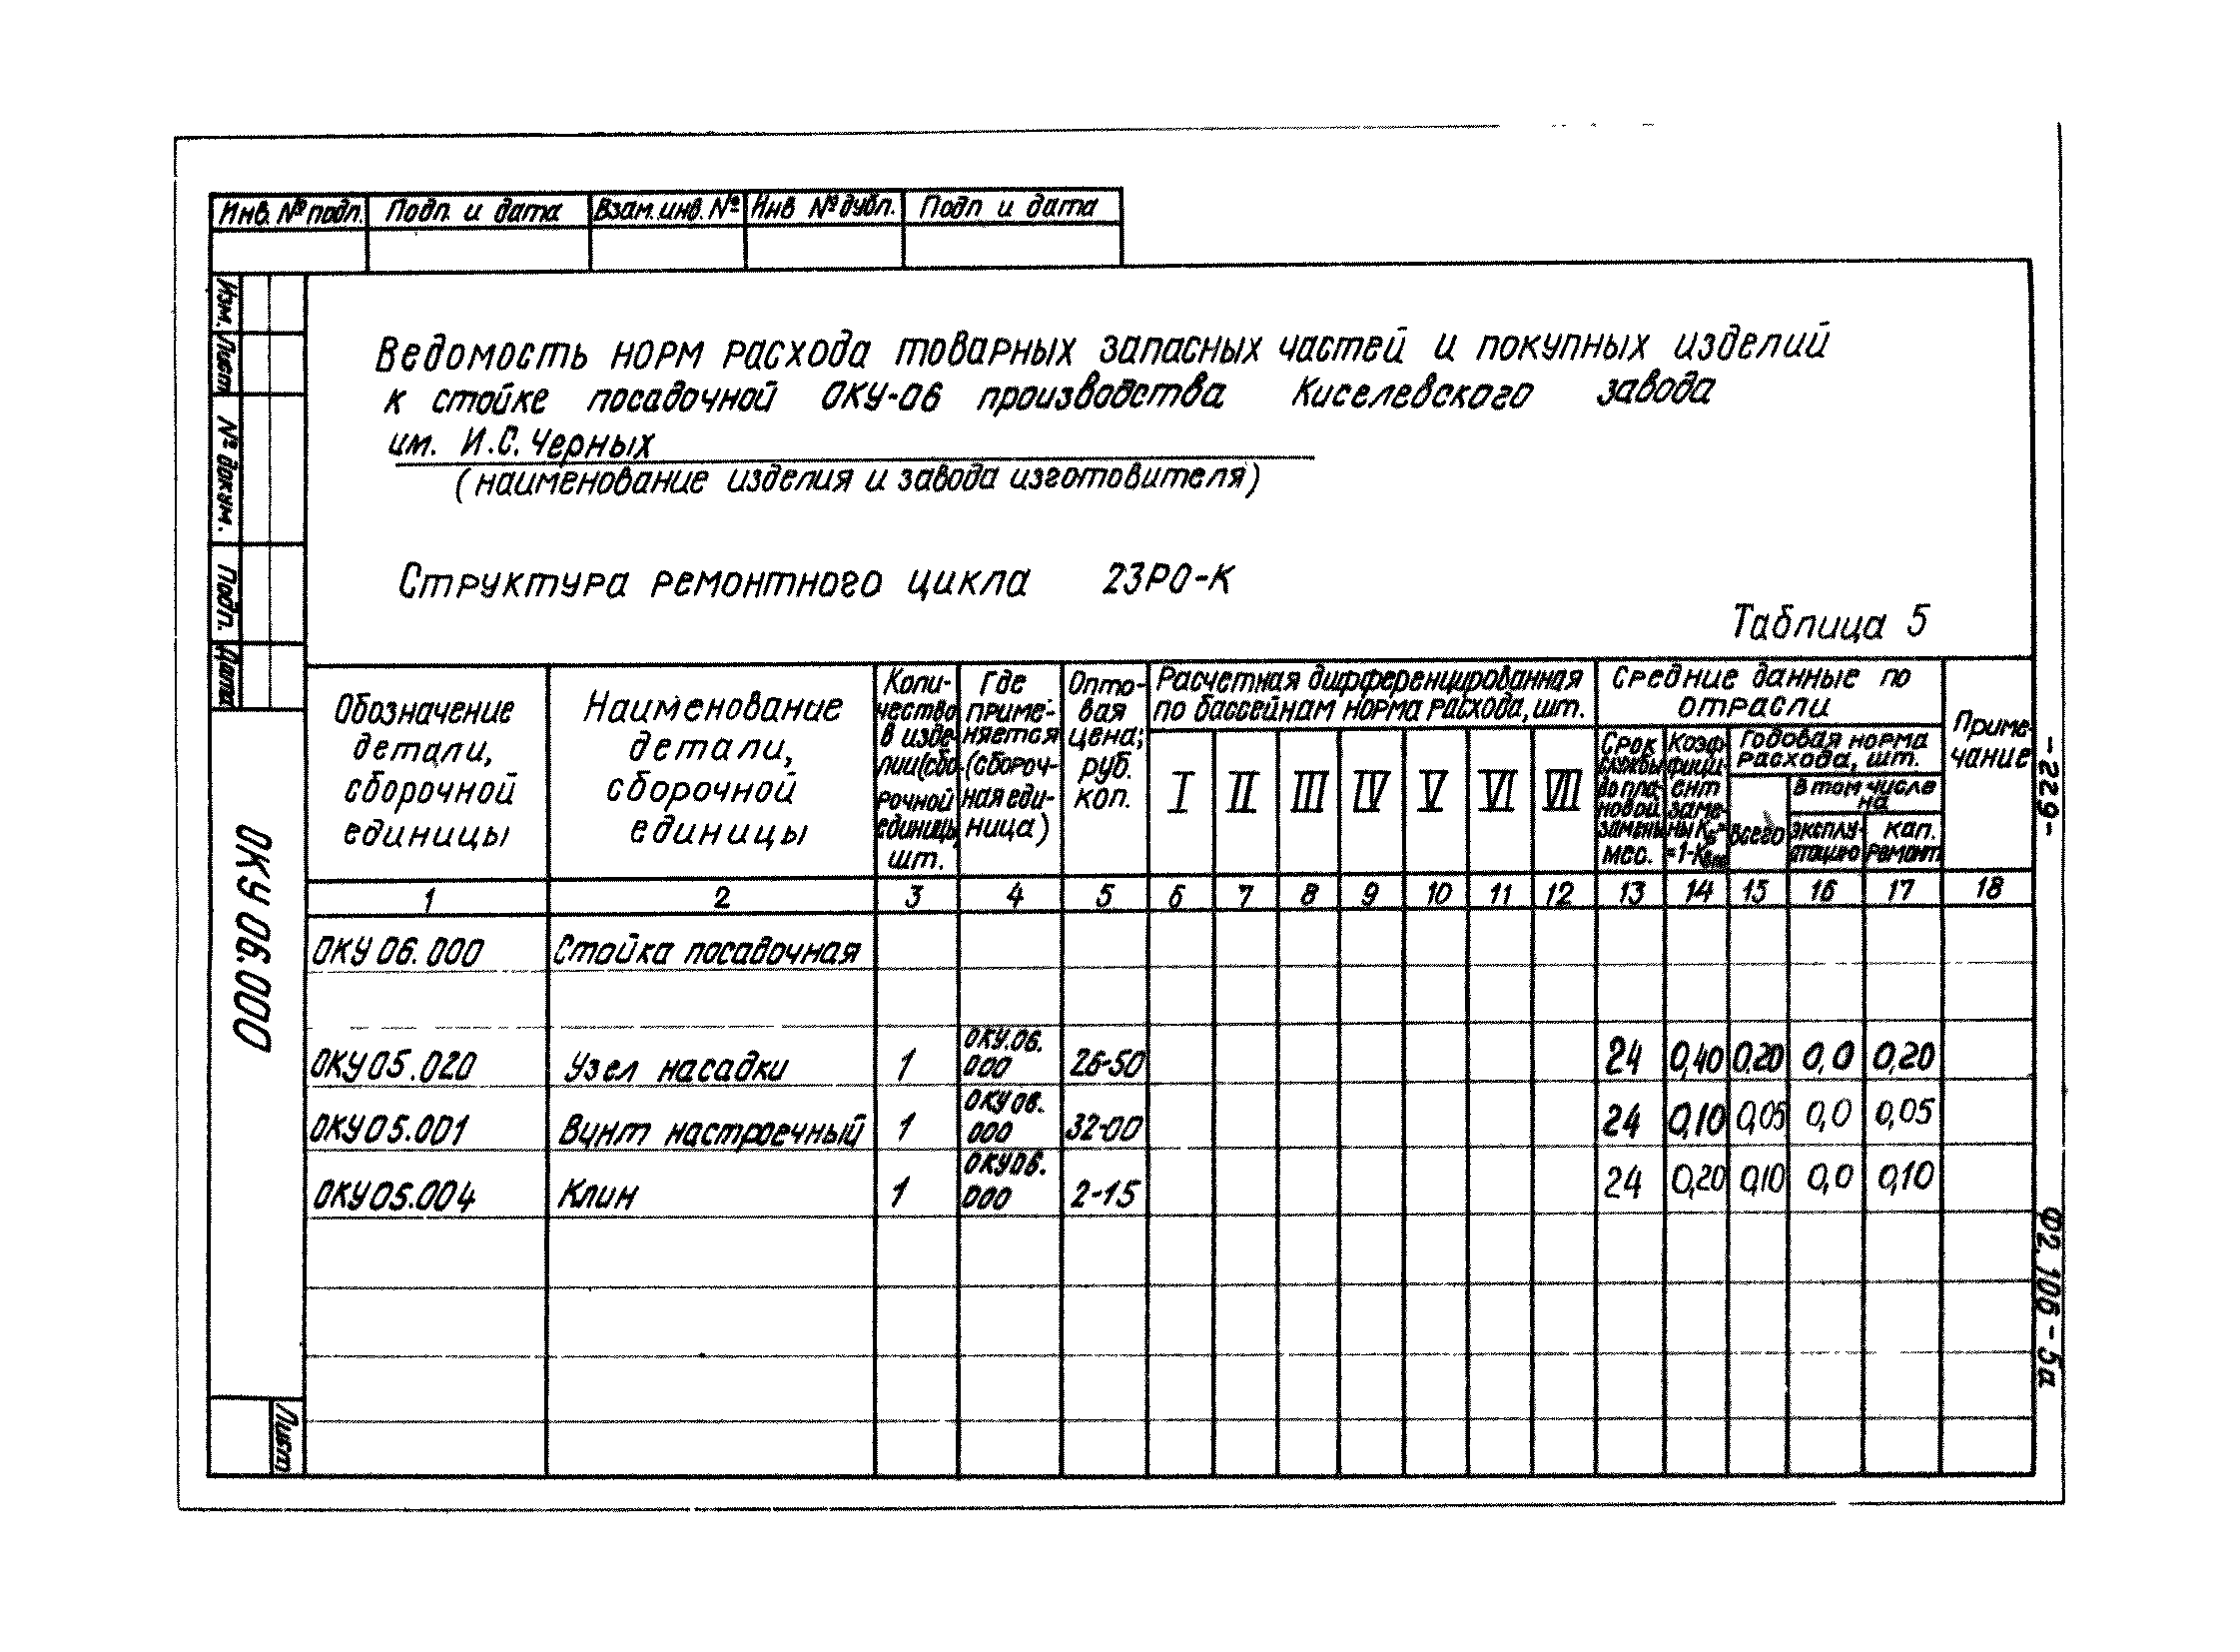 Инв. № подп. Подп. и дата Взам. инв. № Инв № дубл. Подп и дата
Изм. Лист № докум. Подп. Дата
ОКУ 06.000
Лист
Ведомость норм расхода товарных запасных частей и покупных изделий
к стойке посадочной ОКУ-06 производства Киселевского завода
им. И.С. Черных
(наименование изделия и завода изготовителя)
Структура ремонтного цикла 23РО-К
Таблица 5
Обозначение
детали,
сборочной
единицы
Наименование
детали,
сборочной
единицы
Коли-
чество
в изде-
лии (сбо-
рочной
единицы,
шт.
Где
приме-
няется
(сбороч-
ная еди-
ница)
Опто-
вая
цена;
руб.
коп.
Расчетная дифференцированная
по бассейнам норма расхода, шт.
I II III IV V VI VII
Средние данные по
отрасли
Срок
службы
до пла-
новой
замены
мес.
Коэф-
фици-
ент
заме-
ны
Годовая норма
расхода, шт.
всего
в том числе
на
эксплу-
атацию
кап.
ремонт
Приме-
чание
1 2 3 4 5 6 7 8 9 10 11 12 13 14 15 16 17 18
ОКУ 06.000 Стойка посадочная
ОКУ 05.020 Узел насадки 1 ОКУ.06. 000 26-50 24 0,40 0,20 0,0 0,20
ОКУ 05.001 Винт настроечный 1 ОКУ 06. 000 32-00 24 0,10 0,05 0,0 0,05
ОКУ 05.004 Клин 1 ОКУ 06. 000 2-15 24 0,20 0,10 0,0 0,10
-229-
Ф2.106-5а